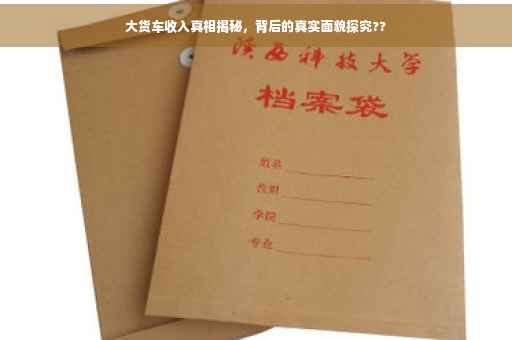 大货车收入真相揭秘，背后的真实面貌探究??
陕西科技大学
档案袋
姓名
学院
专业